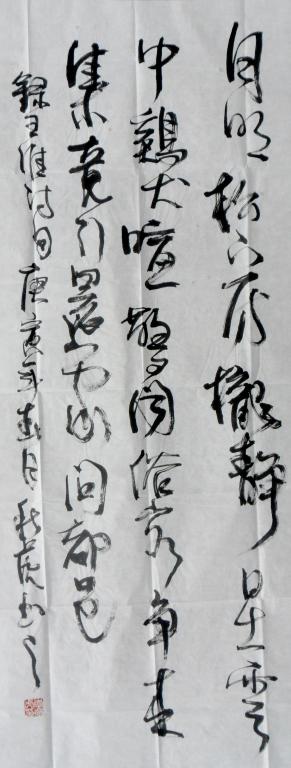 月明松下房櫳靜日出雲
中鷄犬喧驚聞俗客爭來
集竟引還家問都邑
錄王維詩句庚寅年春月書之